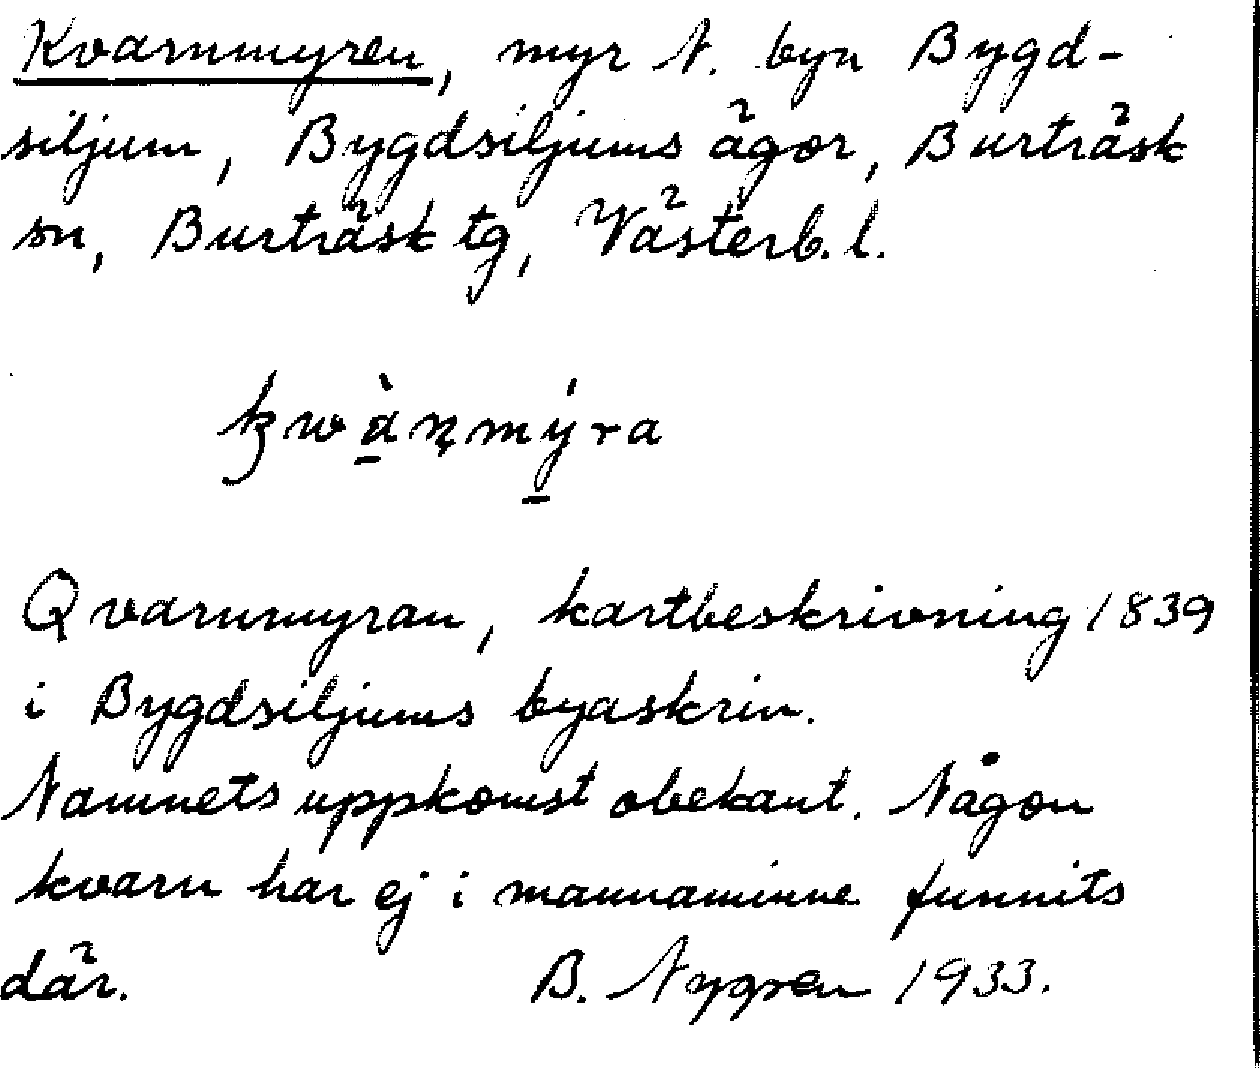 Kvarnmyren, myr N. byn Bygd-
siljum, Bygdsiljums ägor, Burträsk
sn, Burträsk tg, Västerb. l.
Qvarnmyran, kartbeskrivning 1839
i Bygdsiljums byaskrin.
Namnets uppkomst obekant. Någon
kvarn har ej i mannaminne funnits
där. B. Nygren 1933.